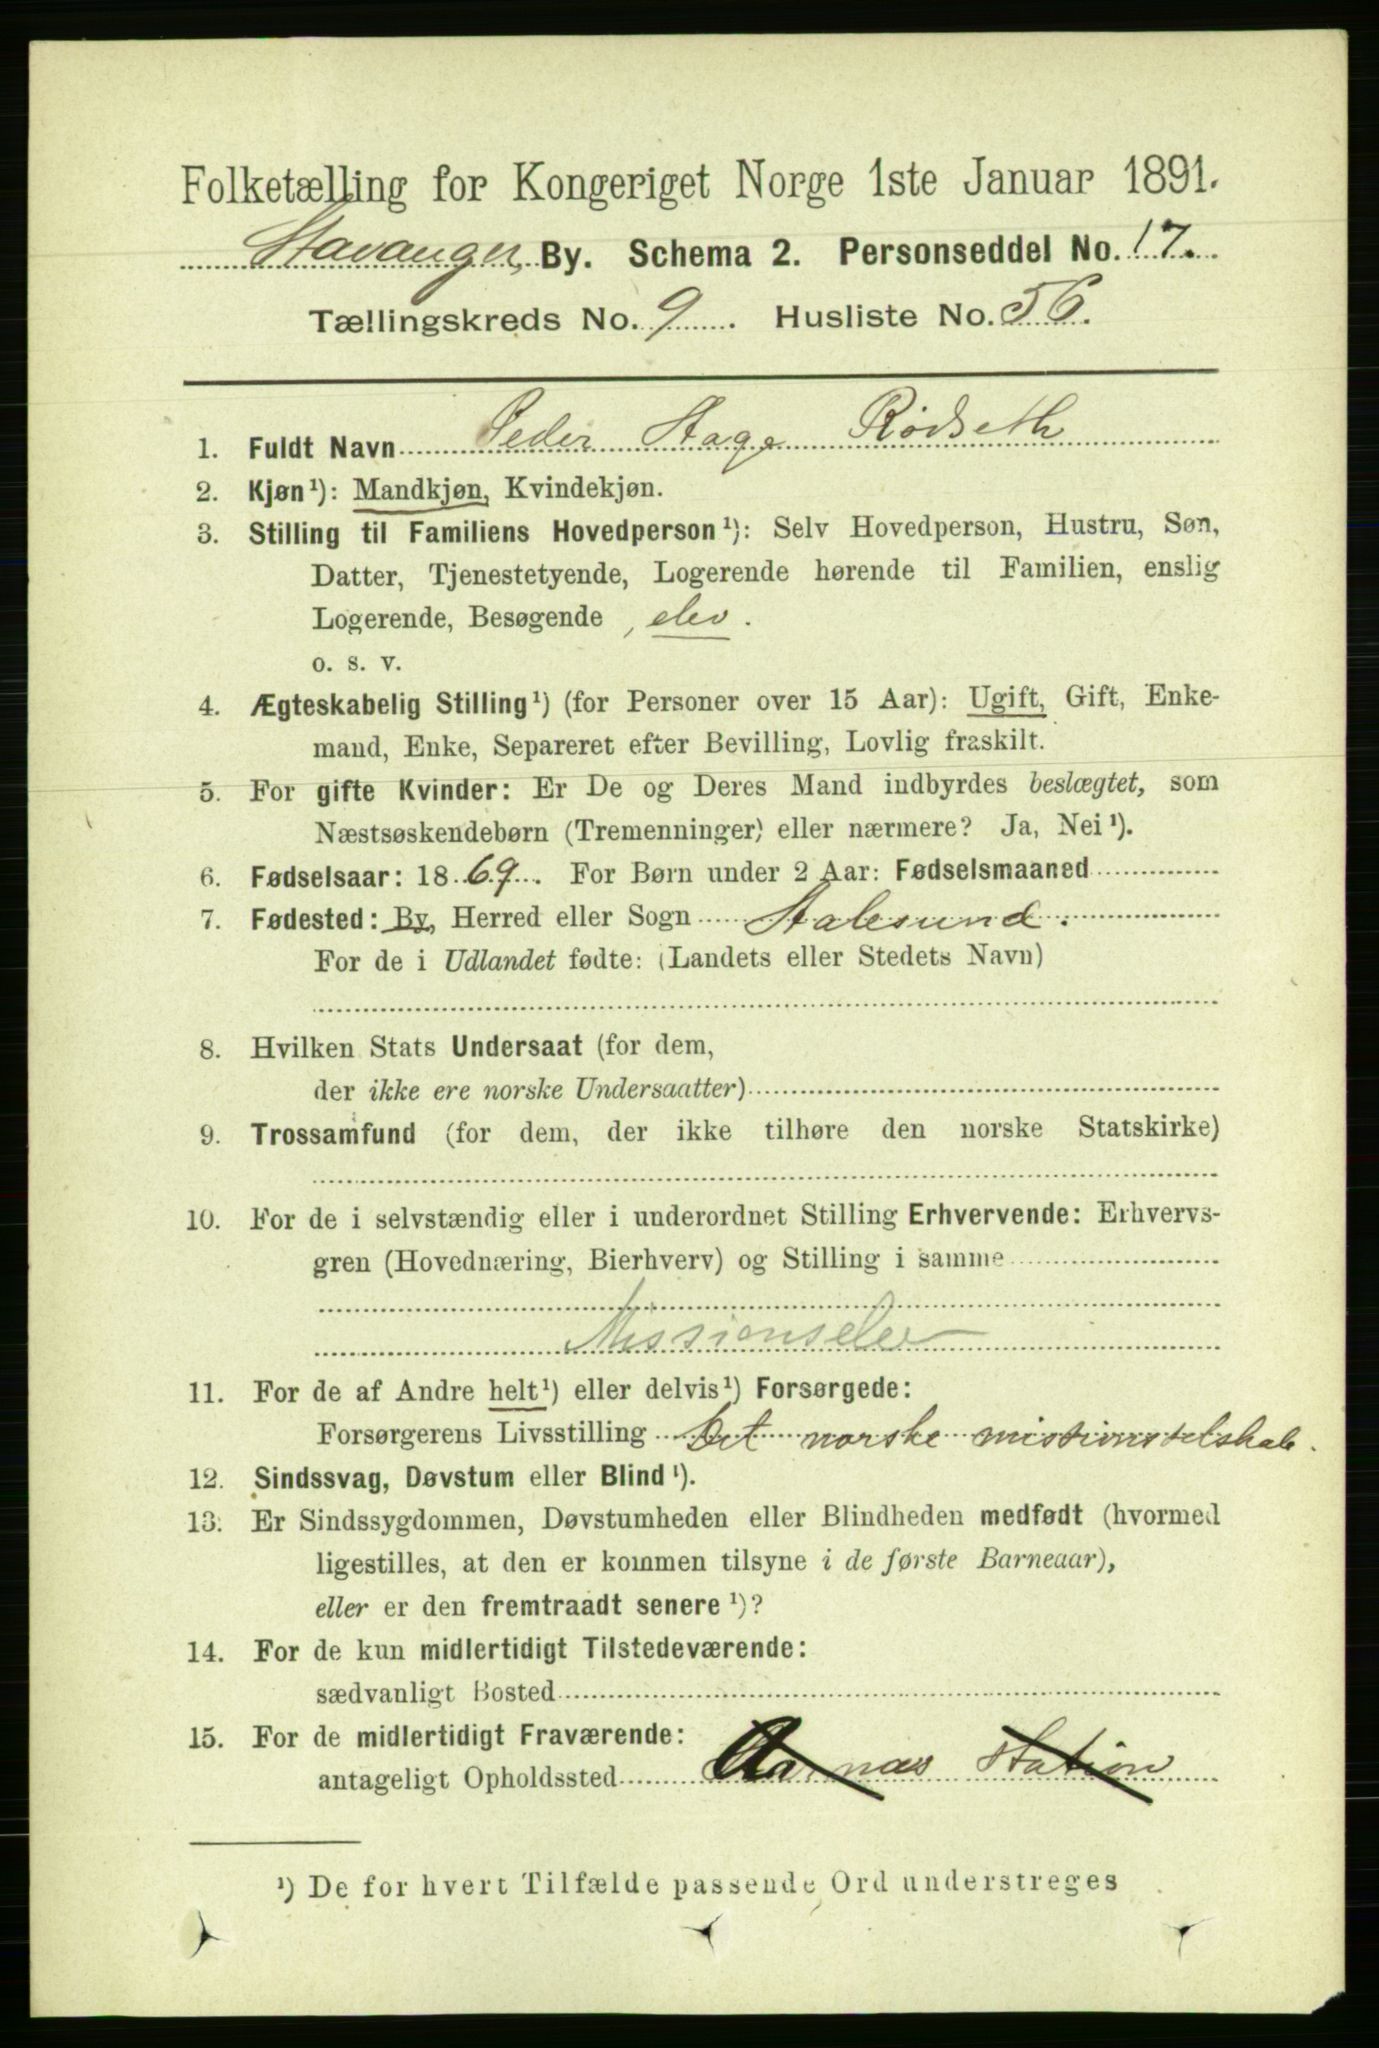 Folketælling for Kongeriget Norge 1ste Januar 1891.
Stavanger By. Schema 2. Personseddel No. 17.
Tællingskreds No. 9. Husliste No. 56.
1. Fuldt Navn Peder Aage Rödseth
2. Kjøn¹): Mandkjøn, Kvindekjøn.
3. Stilling til Familiens Hovedperson¹): Selv Hovedperson, Hustru, Søn,
Datter, Tjenestetyende, Logerende hørende til Familien, enslig
Logerende, Besøgende, elev.
o. s. v.
4. Ægteskabelig Stilling¹) (for Personer over 15 Aar): Ugift, Gift, Enke-
mand, Enke, Separeret efter Bevilling, Lovlig fraskilt.
5. For gifte Kvinder: Er De og Deres Mand indbyrdes beslægtet, som
Næstsøskendebørn (Tremenninger) eller nærmere? Ja, Nei¹).
6. Fødselsaar: 1869. For Børn under 2 Aar: Fødselsmaaned
7. Fødested: By, Herred eller Sogn Aalesund.
For de i Udlandet fødte: (Landets eller Stedets Navn)
8. Hvilken Stats Undersaat (for dem,
der ikke ere norske Undersaatter)
9. Trossamfund (for dem, der ikke tilhøre den norske Statskirke)
10. For de i selvstændig eller i underordnet Stilling Erhvervende: Erhvervs-
gren (Hovednæring, Bierhverv) og Stilling i samme
Missionselev
11. For de af Andre helt¹) eller delvis¹) Forsørgede:
Forsørgerens Livsstilling Det norske missionsselskab.
12. Sindssvag, Døvstum eller Blind¹).
13. Er Sindssygdommen, Døvstumheden eller Blindheden medfødt (hvormed
ligestilles, at den er kommen tilsyne i de første Barneaar),
eller er den fremtraadt senere¹)?
14. For de kun midlertidigt Tilstedeværende:
sædvanligt Bosted
15. For de midlertidigt Fraværende:
antageligt Opholdssted Aarnæs Station
¹) De for hvert Tilfælde passende Ord understreges